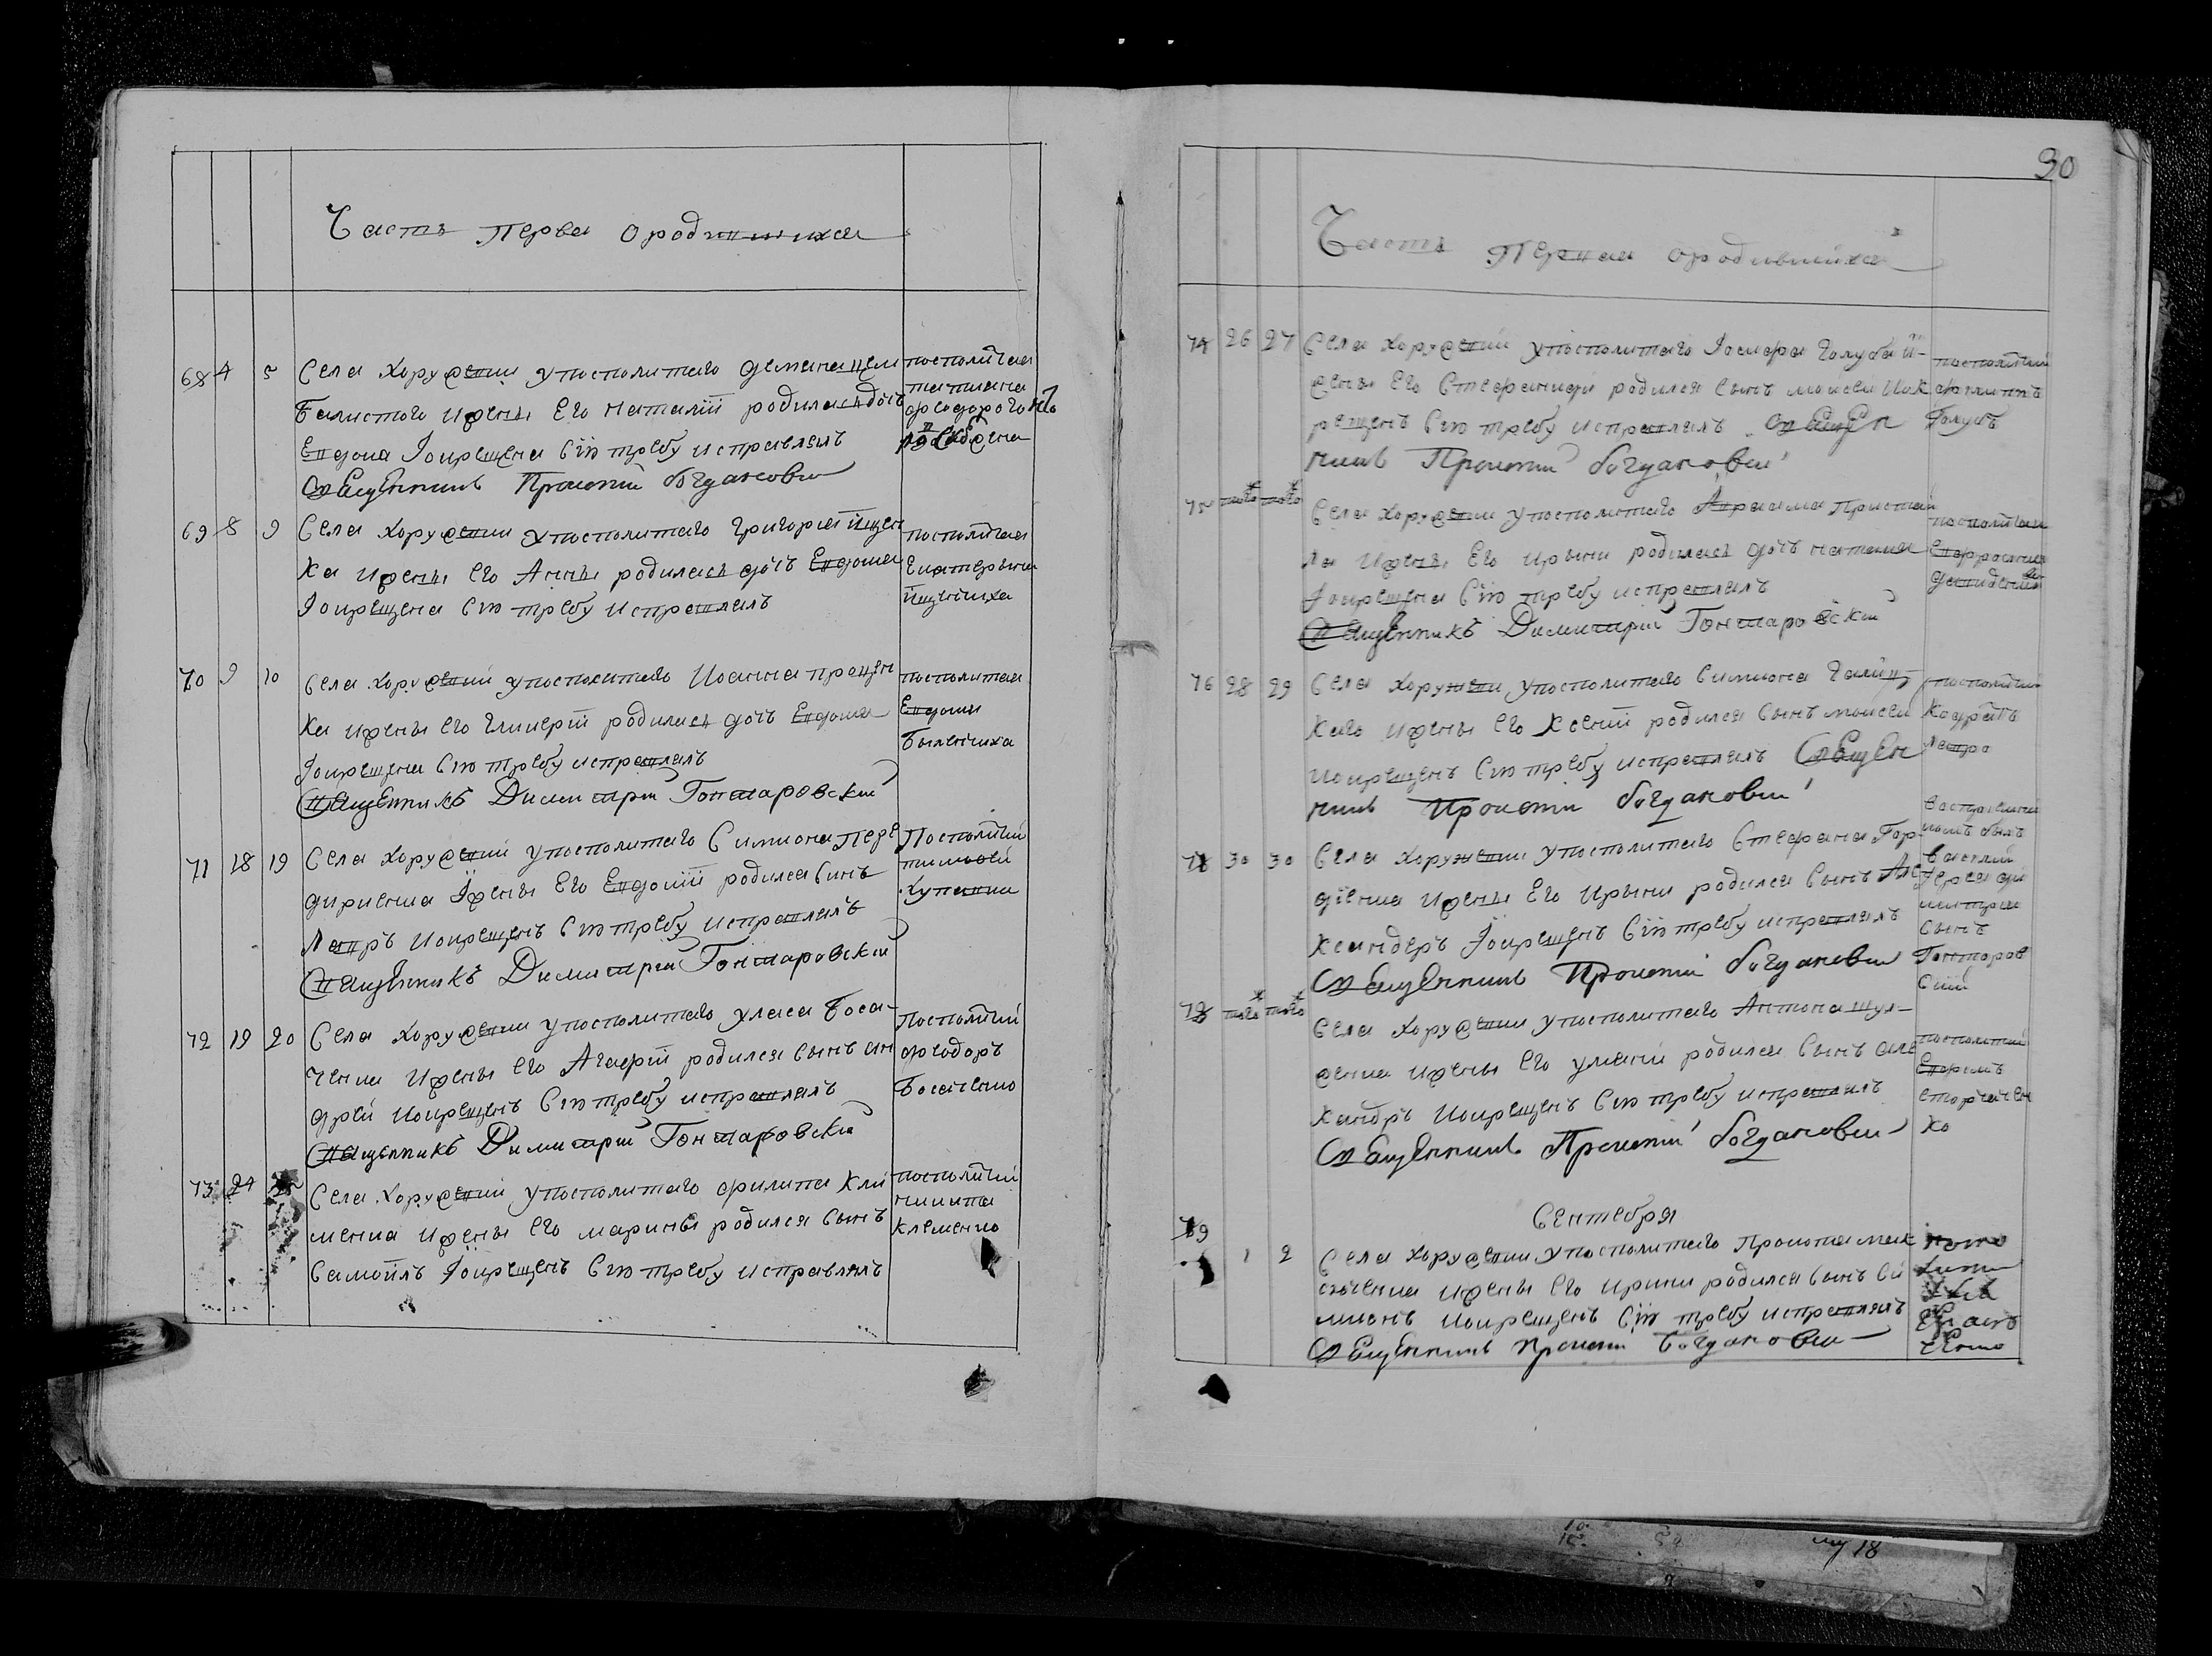 Часть перва ородившихся
68 4 5 Села Хоружевки упосполитаго Демяна
Балистого ижены его наталіи родилась дочь
Евдокиа Iокрещена Сїю требу исправлялъ
Священникъ Прокопій богданович
посполитая
татиана
69 8 9 Села Хоружевки упосполитаго григория Ищен
ка ижены его Анны родилась дочь Евдокиа
Iокрещена Сїю требу исправлялъ
посполитая
Екатерына
Ищенчиха
70 9 10 Села Хоружевки упосполитаго Иоанна процен
ка ижены его гликерїи родилась дочь Евдокиа
Iокрещена Сїю требу исправлялъ
Священникъ Димитрїй Гончаровскій
посполитая
Евдокия
71 18 19 Села Хоружевки упосполитаго Симиона пере
Iжены Его Евдокїи родился Сынъ
Лавръ Iокрещенъ Сїю требу исправлялъ
Священникъ Димитрїй Гончаровскій
Посполитїй
тимофей
72 19 20 Села Хоружевки упосполитаго уласа Боса-
ченка Ижены его Агафїи родился Сынъ ан
дрей Iокрещенъ Сїю требу исправлялъ
Священникъ Димитрїй Гончаровскій
Посполитїй
федоръ
Босаченко
73 24 25 Села Хоружевки упосполитаго филипа Кли
менка ижены Его марины родился Сынъ
Самойлъ Iокрещенъ Сїю требу исправлялъ
посполитїй
никита
Клеменко
90
Часть Первая ородившихся
74 26 27 Села Хоружевки упосполитаго Iосифа голуба и-
жены Его Стефаниди родился Сынъ моисей Iок
рещенъ Сїю требу исправлялъ Священ
никъ Прокопій богданович
посполитїй
филиппъ
голубъ
75 того того Села Хоружевки упосполитаго Авраама
ижены Его Ирыны родилась дочь наталия
Iокрещена Сїю требу исправлялъ
Священникъ Димитрїй Гончаровскій
посполитая
Евфросиния
76 28 29 Села Хоружевки упосполитаго Симиона
каго ижены Его Ксенїи родился Сынъ моисей
Iокрещенъ Сїю требу исправлялъ Священ
никъ Прокопій богданович
посполитїй
Кодратъ
Лавро
30 30 Села Хоружевки упосполитаго Стефана Гор
дїенка ижены Его Ирыны родился Сынъ Але
ксандеръ Iокрещенъ Сїю требу исправлялъ
Священникъ Прокопій богданович
Воспрїемни
комъ былъ
Василїй
Iерея ди
митрїя
Сынъ
Гончаров
скїй
того того Села Хоружевки упосполитаго Антона шул-
женка ижены Его улянїи родился Сынъ але
ксандръ Iокрещенъ Сїю требу исправлялъ
Священникъ Прокопій богданович
посполитїй
Ефремъ
ко
Сентебря
79 1 2 Села Хоружевки упосполитаго Прокопа
ижены Его ирини родился Сынъ Си
мионъ Iокрещенъ Сїю требу исправлялъ
Священникъ Прокопій Богданович